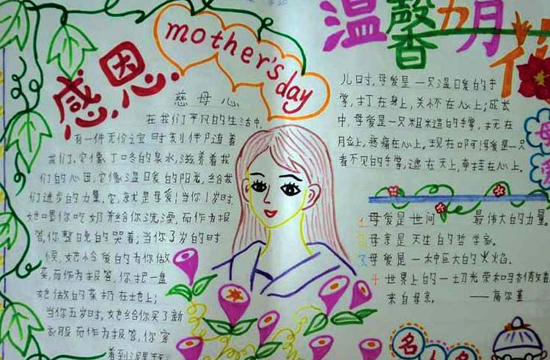 感恩
mother's
day
温馨五月
慈母心
在我们平凡的生活中,
有一件无价之宝时刻伴随着
我们,它像丁冬的泉水,滋养着我
们的心田,它像温暖的阳光,给我
们进步的力量,它就是母爱!当你1岁时,
她喂你吃奶并给你洗澡,而作为报
答,你整晚的哭着;当你3岁的时
候,她怜爱的为你做
菜,而作为报答,你把一盘
她做的菜扔在地上;
当你五岁时,她给你买了新
衣服,而作为报答,你穿
着到泥
儿时,母爱是一只温暖的手
掌,打在身上,关怀在心上;成长
中,母爱是一只粗糙的手掌,
疼痛在心上,现在
看不见的手掌,遮在天上,牵挂在心上。
母爱是世间 最伟大的力量。
母亲是天生的哲学家。
母爱是一种巨大的火焰。
世界上的一切光荣和
来自母亲。——高尔基
名